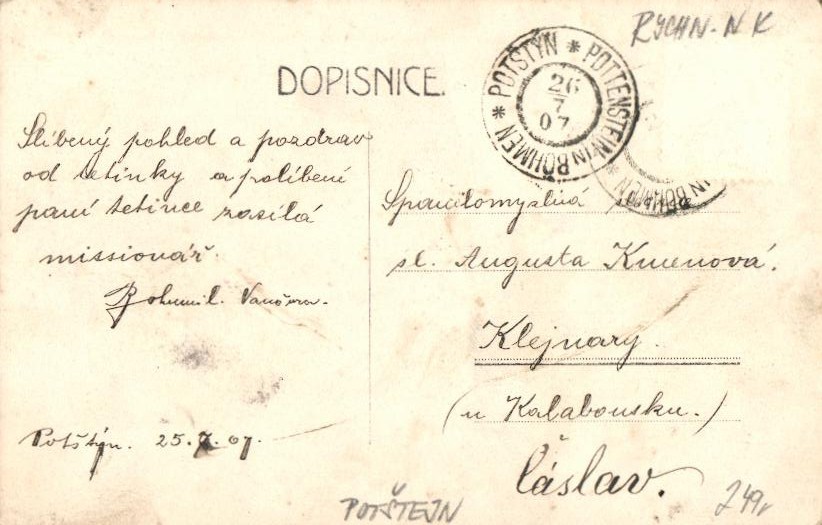 RYCHN. N K
DOPISNICE.
* POTŠTÝN * POTTENSTEIN IN BÖHMEN
26
7
07
IN BÖHMEN *
Slíbený pohled a pozdrav
od tetinky a políbení
paní tetince zasílá
missionář.
Bohumil
Potštýn. 25.7.07.
Spanilomyslná
sl. Augusta Kmenová.
Klejnary
(u Kalabousku.)
Čáslav.
POTŠTEJN
249,